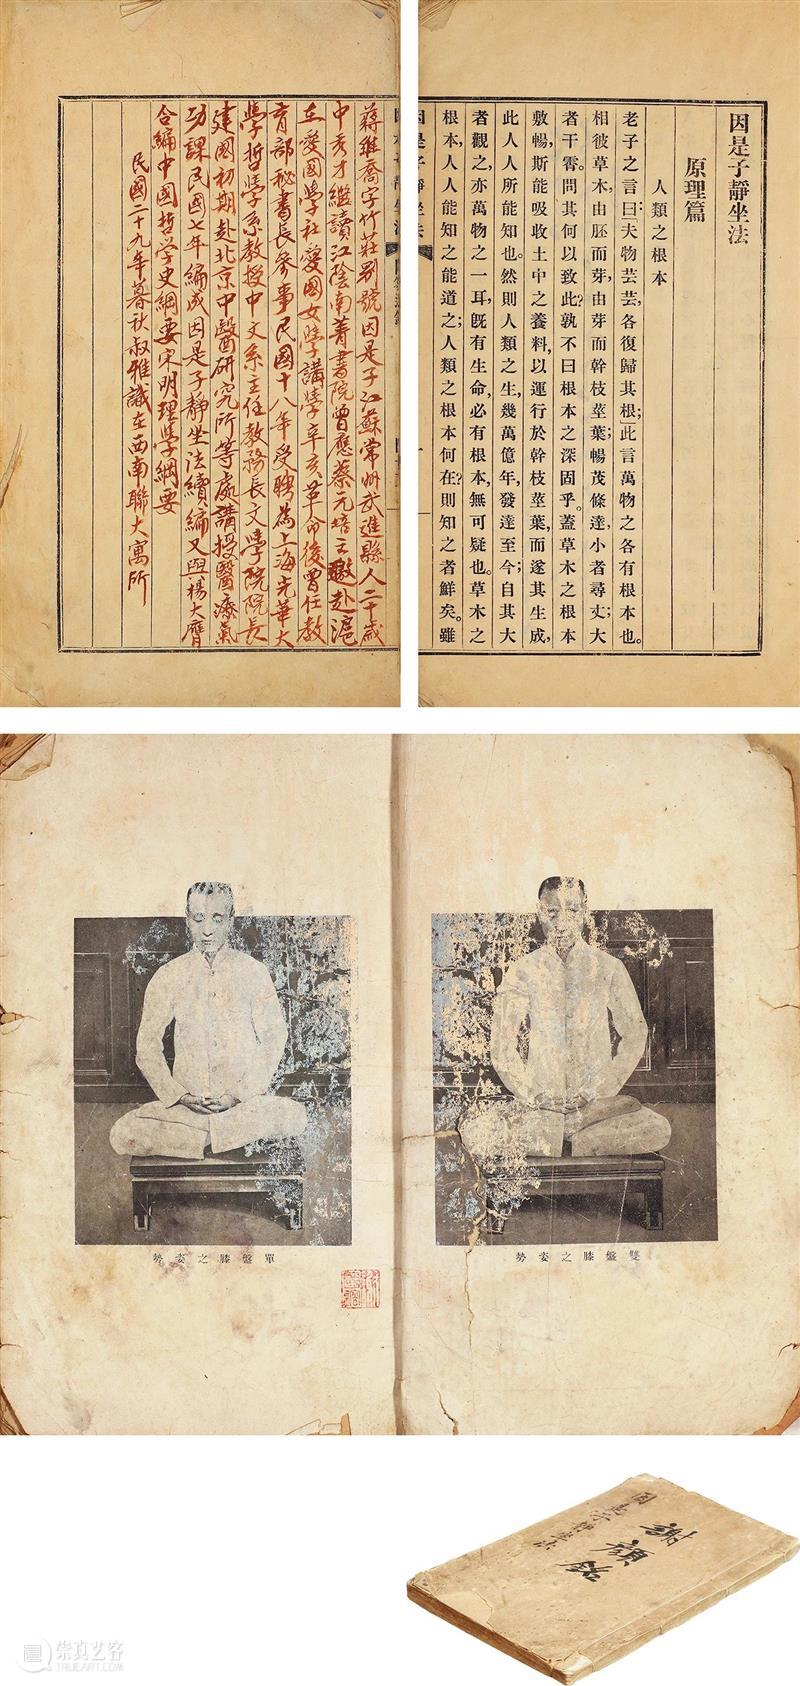 因是子靜坐法
原理篇
人類之根本
老子之言曰「夫物芸芸，各復歸其根；」此言萬物之各有根本也。
相彼草木，由胚而芽，由芽而幹枝莖葉；暢茂條達，小者尋丈；大
者干霄。問其何以致此？孰不曰根本之深固乎。蓋草木之根本
敷暢，斯能吸收土中之養料，以運行於幹枝莖葉，而遂其生成，
此人人所能知也。然則人類之生，幾萬億年，發達至今；自其大
者觀之，亦萬物之一耳，既有生命，必有根本，無可疑也。草木之
根本，人人能知之能道之；人類之根本何在？則知之者鮮矣。雖
因是子靜坐法
蔣維喬字竹莊別號因是子江蘇常州武進縣人二十歲
中秀才繼讀江陰南菁書院曾應蔡元培之邀赴滬
在愛國學社愛國女學講學辛亥革命後曾任教
育部秘書長參事民國十八年受聘為上海光華大
學哲學系教授中文系主任教務長文學院院長
建國初期赴北京中醫研究所等處講授醫療氣
功課民國七年編成因是子靜坐法續編又與楊大膺
合編中國哲學史綱要宋明理學綱要
民國二十九年暮秋叔雅識在西南聯大寓所
雙盤膝之姿勢
單盤膝之姿勢
因是子靜坐法
崇真艺客